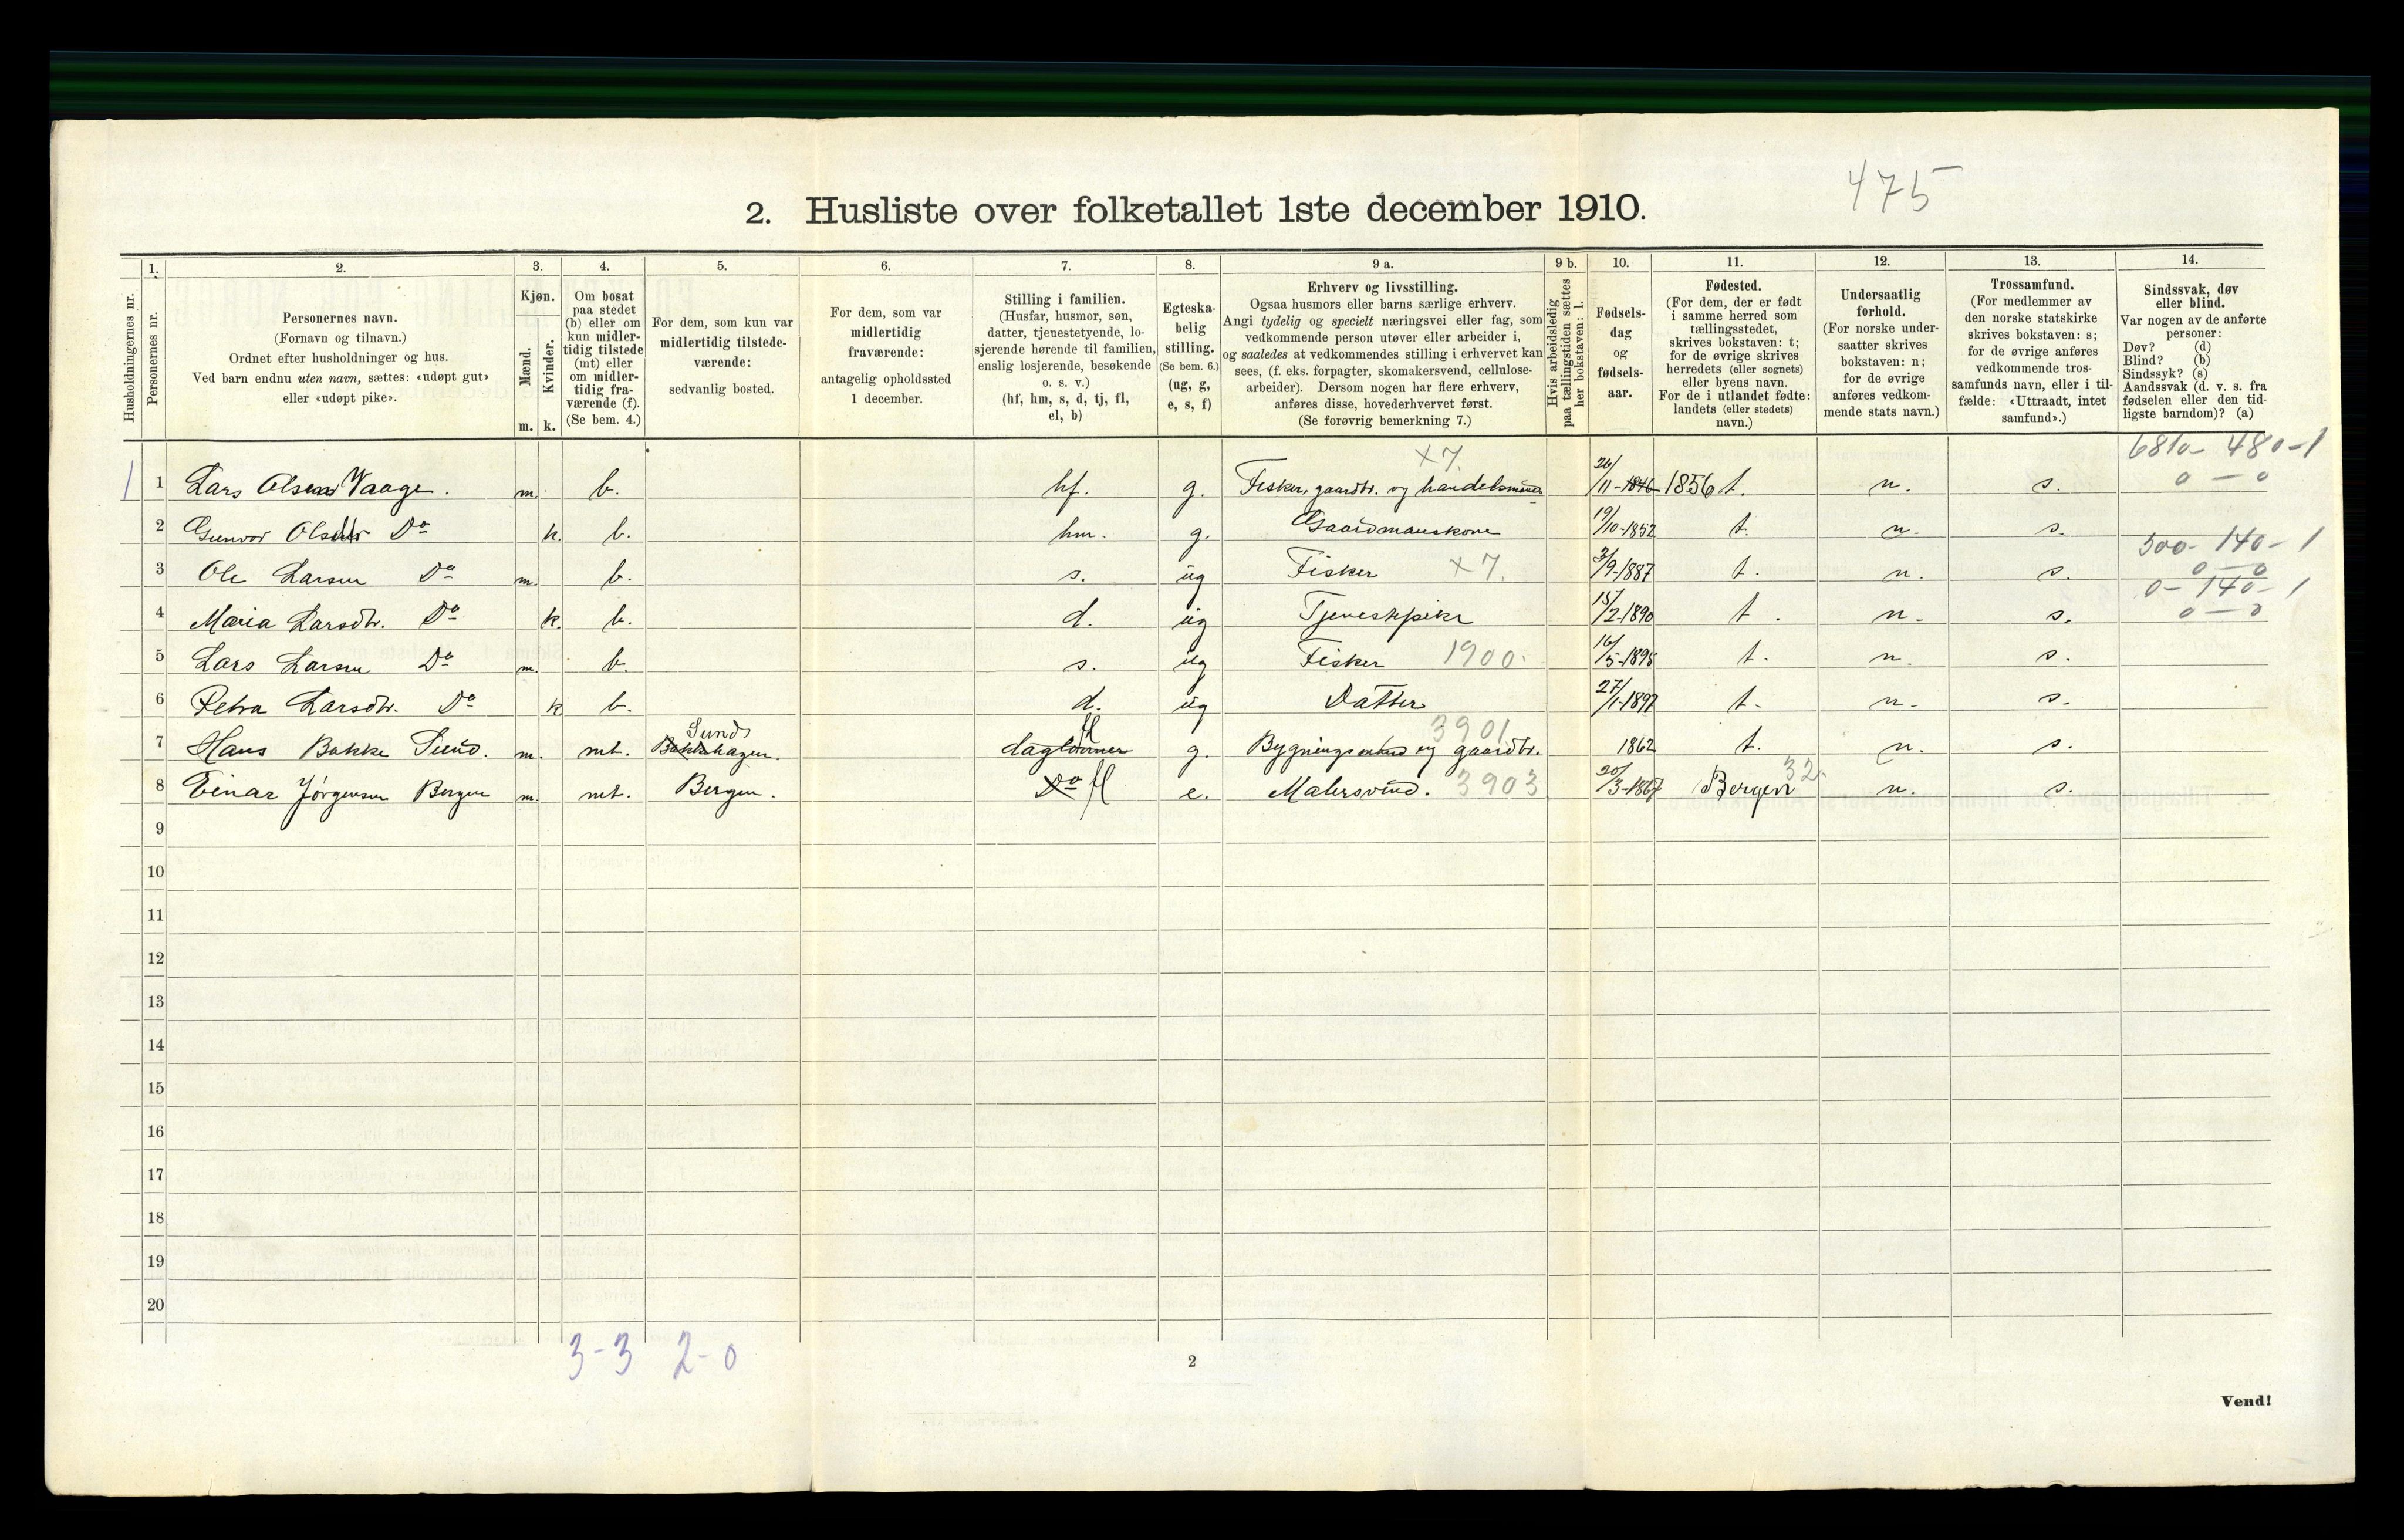 475
2. Husliste over folketallet 1ste december 1910.
Husholdningernes nr.
1.
Personernes nr.
2.
Personernes navn.
(Fornavn og tilnavn.)
Ordnet efter husholdninger og hus.
Ved barn endnu uten navn, sættes: «udøpt gut»
eller «udøpt pike».
3.
Kjøn.
Mænd.
Kvinder.
m. k.
4.
Om bosat
paa stedet
(b) eller om
kun midler-
tidig tilstede
(mt) eller
om midler-
tidig fra-
værende (f).
(Se bem. 4.)
5.
For dem, som kun var
midlertidig tilstede-
værende:
sedvanlig bosted.
6.
For dem, som var
midlertidig
fraværende:
antagelig opholdssted
1 december.
7.
Stilling i familien.
(Husfar, husmor, søn,
datter, tjenestetyende, lo-
sjerende hørende til familien,
enslig losjerende, besøkende
o. s. v.)
(hf, hm, s, d, tj, fl,
el, b)
8.
Egteska-
belig
stilling.
(Se bem. 6.)
(ug, g,
e, s, f)
9 a.
Erhverv og livsstilling.
Ogsaa husmors eller barns særlige erhverv.
Angi tydelig og specielt næringsvei eller fag, som
vedkommende person utøver eller arbeider i,
og saaledes at vedkommendes stilling i erhvervet kan
sees, (f. eks. forpagter, skomakersvend, cellulose-
arbeider). Dersom nogen har flere erhverv,
anføres disse, hovederhvervet først.
(Se forøvrig bemerkning 7.)
9 b.
Hvis arbeidsledig
paa tællingstiden sættes
her bokstaven: l.
10.
Fødsels-
dag
og
fødsels-
aar.
11.
Fødested.
(For dem, der er født
i samme herred som
tællingsstedet,
skrives bokstaven: t;
for de øvrige skrives
herredets (eller sognets)
eller byens navn.
For de i utlandet fødte:
landets (eller stedets)
navn.)
12.
Undersaatlig
forhold.
(For norske under-
saatter skrives
bokstaven: n;
for de øvrige
anføres vedkom-
mende stats navn.)
13.
Trossamfund.
(For medlemmer av
den norske statskirke
skrives bokstaven: s;
for de øvrige anføres
vedkommende tros-
samfunds navn, eller i til-
fælde: «Uttraadt, intet
samfund».)
14.
Sindssvak, døv
eller blind.
Var nogen av de anførte
personer:
Døv? (d)
Blind? (b)
Sindssyk? (s)
Aandssvak (d. v. s. fra
fødselen eller den tid-
ligste barndom)? (a)
x7. 6810- 480-1
1 1 Lars Olsen Vaage. m. b. hf. g. Fisker, gaardbr. og handelsmand 26/11-1846 1856 t. n. s. 0-0
2 Gunvor Do k. b. hm. g. Gaardmanskone 19/10-1852 t. n. s.
3 Ole Larsen Do m. b. s. ug Fisker x7. 3/9-1887 t. n. s. 300- 140-1 0-0
4 Maria Larsdtr. Do k. b. d. ug Tjenestpike 15/2-1890 t. n. s. 0-140-1 0-0
5 Lars Larsen Do m. b. s. ug Fisker 1900. 16/5-1895 t. n. s.
6 Petra Larsdtr. Do k b. d. ug Datter 27/1-1897 t. n. s.
7 Hans Bakke Sund. m. mt. Sund fl g. og gaardbr. 3901 1862 t. n. s.
8 Einar Jørgensen Bergen m. mt. Bergen. Do fl e. Malersvend. 3903 20/3-1867 Bergen 32. n. s.
9
10
11
12
13
14
15
16
17
18
19
20
3-3 2-0
2
Vend!